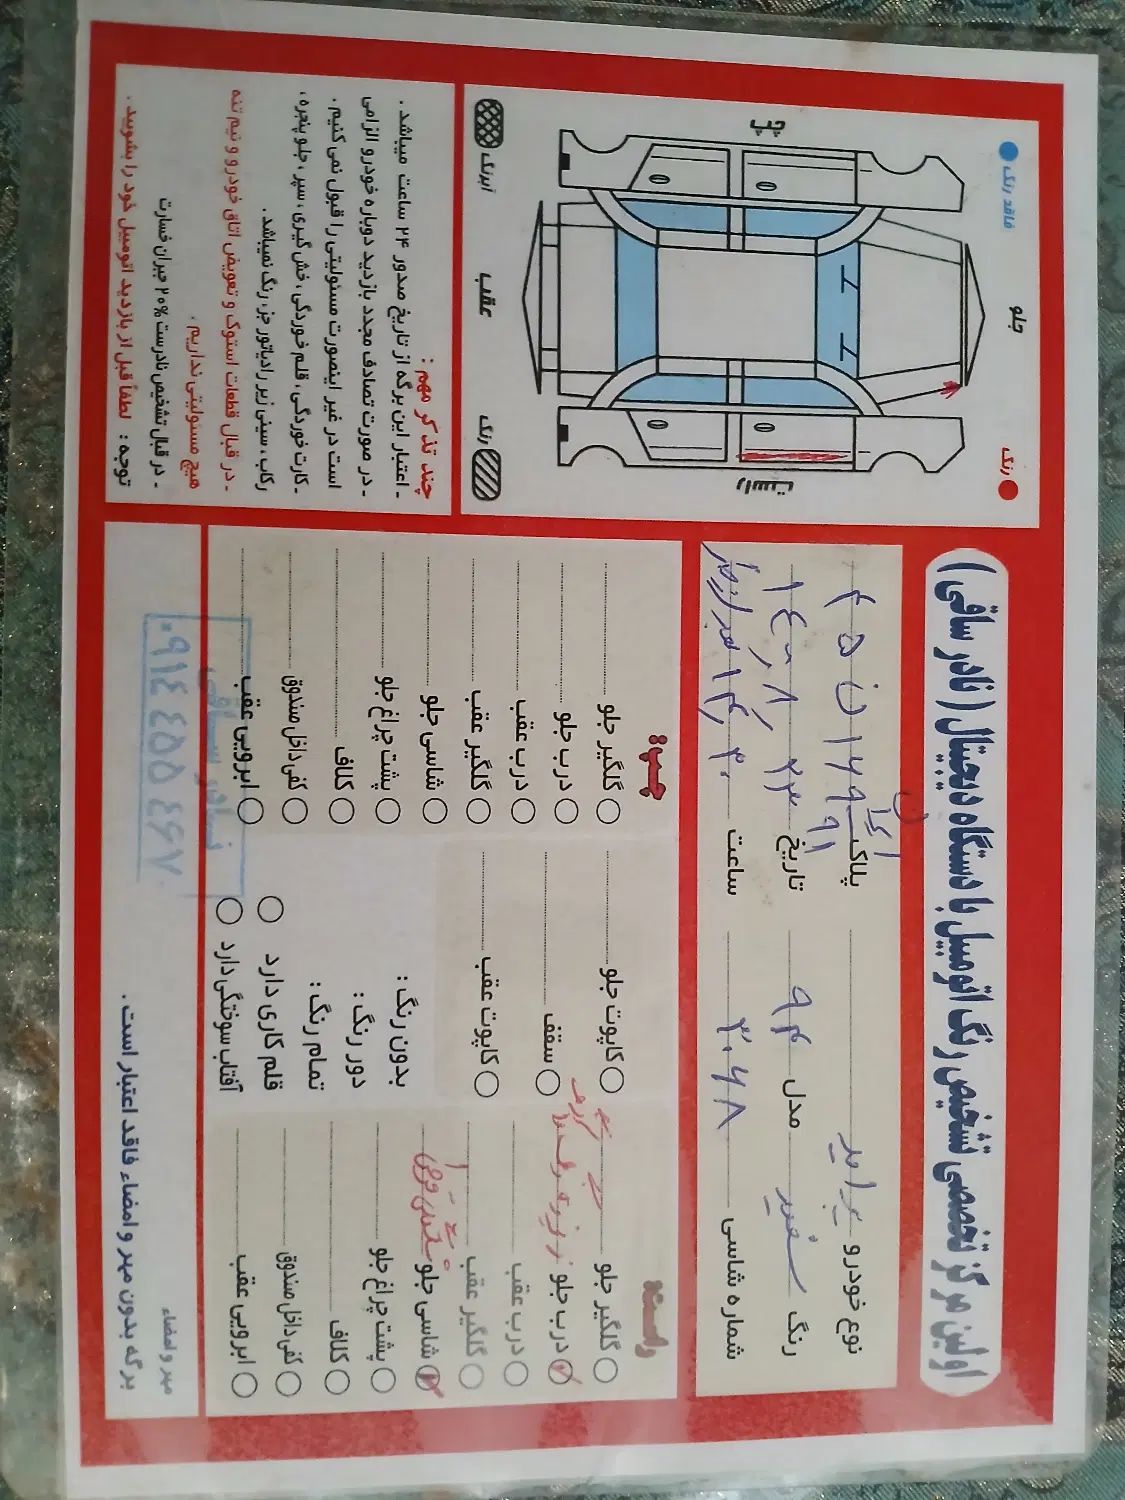 اولین مرکز تخصصی تشخیص رنگ اتومبیل با دستگاه دیجیتال ( نادر ساقی )
نوع خودرو پراید
پلاک
رنگ سفید
مدل ۹۴
تاریخ
شماره شاسی ۳۰۶۸
ساعت
راست:
گلگیر جلو
درب جلو
درب عقب
گلگیر عقب
شاسی جلو
پشت چراغ جلو
کلاف
کفی داخل صندوق
ابرویی عقب
کاپوت جلو
سقف
کاپوت عقب
بدون رنگ :
دور رنگ :
تمام رنگ :
قلم کاری دارد
آفتاب سوختگی دارد
چپ:
گلگیر جلو
درب جلو
درب عقب
گلگیر عقب
شاسی جلو
پشت چراغ جلو
کلاف
کفی داخل صندوق
ابرویی عقب
نادر ساقی
۰۹۱۴ ۴۵۵ ۴۶۷۰
مهر و امضاء
برگه بدون مهر و امضاء فاقد اعتبار است .
فاقد رنگ
جلو
رنگ
چپ
راست
آبرنگ
عقب
رنگ
چند تذکر مهم :
- اعتبار این برگه از تاریخ صدور ۲۴ ساعت میباشد .
- در صورت تصادف مجدد بازدید دوباره خودرو الزامی
است در غیر اینصورت مسئولیتی را قبول نمی کنیم .
- کارت خوردگی ، قلم خوردگی ، خش گیری ، سپر ، جلو پنجره ،
رکاب ، سینی زیر رادیاتور جزء رنگ نمیباشد .
- در قبال قطعات استوک و تعویض اتاق خودرو و نیم تنه
هیچ مسئولیتی نداریم .
- در قبال تشخیص نادرست ۲۰% جبران خسارت
توجه : لطفاً قبل از بازدید اتومبیل خود را بشویید .